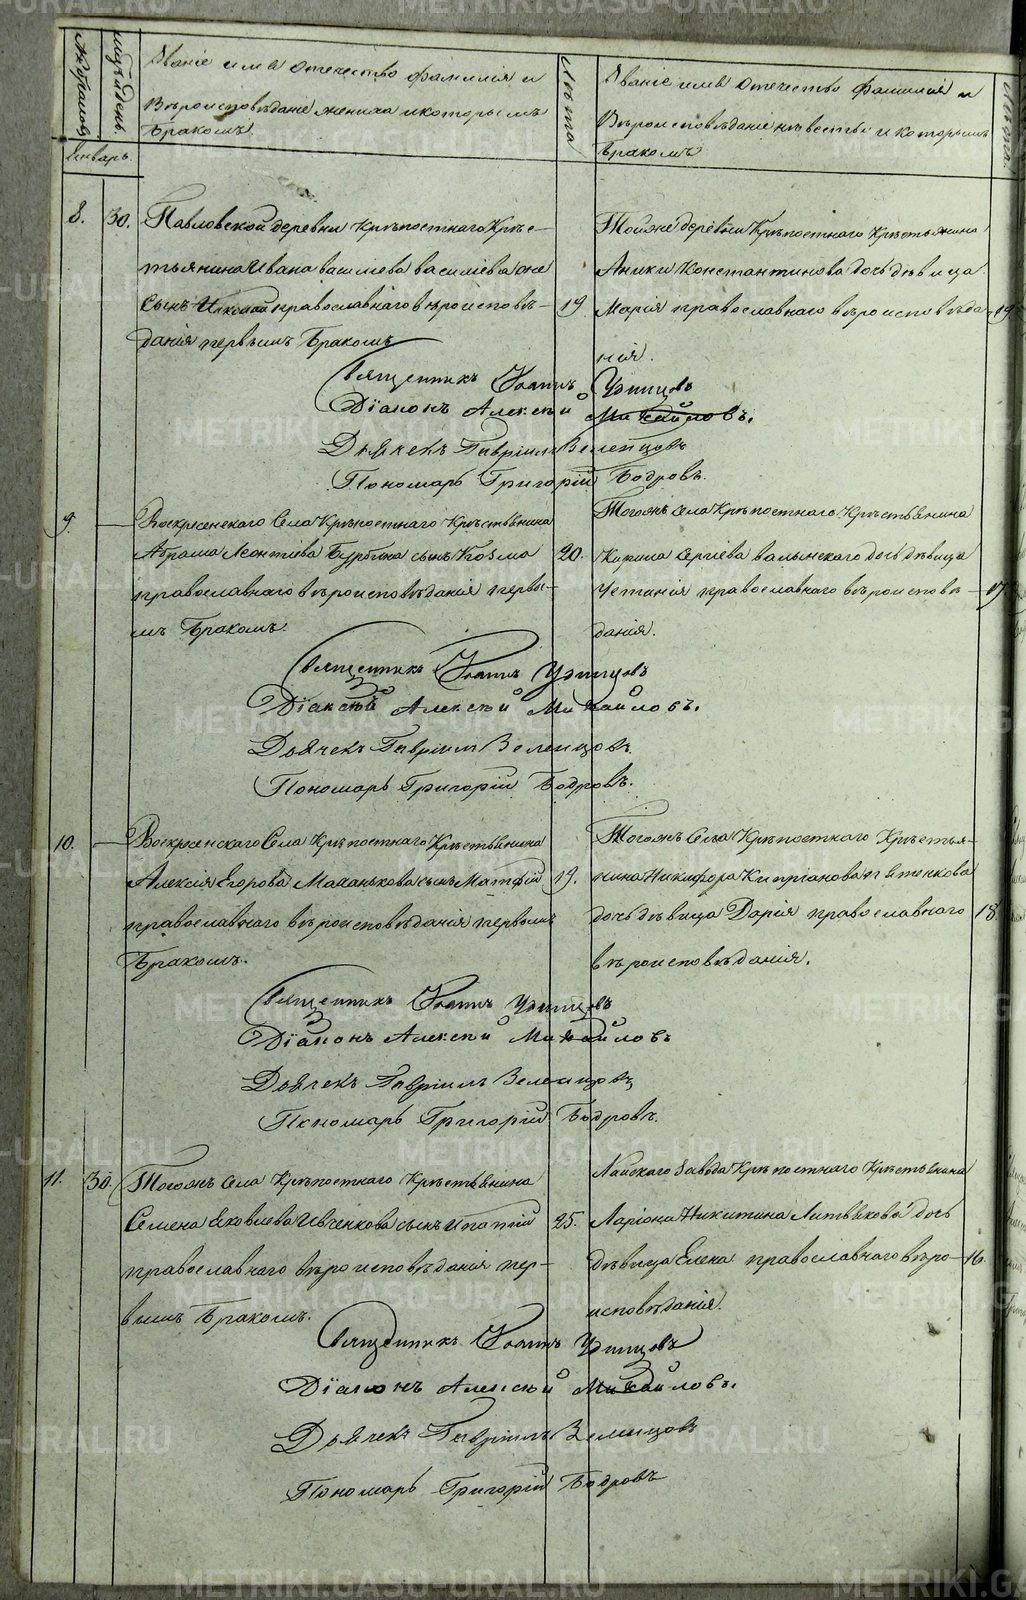 № браковъ
мѣсяцъ и день.
Званіе имя отечество фамилія и
Вѣроисповѣданіе жениха и которымъ
Бракомъ.
Лѣта
Званіе имя отечество фамилія и
Вѣроисповѣданіе невѣсты и которымъ
бракомъ
Лѣта.
Январь.
8. 30. Павловской деревни Крѣпостнаго Кресть-
тьянина Ивана васильева васильева же
сынъ Николай православнаго вѣроисповѣ- 19
данія первымъ Бракомъ
Тойже деревни Крѣпостнаго Крестьянина
Аники Константинова дочь дѣвица
Марія православнаго вѣроисповѣда- 19
нія.
Священникъ Іоаннъ Удинцовъ
Діаконъ Алексѣй Михайловъ.
Дьячекъ Гавріилъ Зеленцовъ
Пономарь Григорій Бодровъ.
9. Воскресенскаго Села Крѣпостнаго Крестьянина
Абрама Леонтіева сынъ Козма 20.
православнаго вѣроисповѣданія первы-
мъ Бракомъ.
Тогожъ села Крѣпостнаго Крестьянина
Кирила Сергіева валынскаго дочь дѣвица
православнаго вѣроисповѣ- 17
данія.
Священникъ Іоаннъ Удинцовъ
Діаконъ Алексѣй Михайловъ.
Дьячекъ Гавріилъ Зеленцовъ
Пономарь Григорій Бодровъ.
10. Воскресенскаго Села Крѣпостнаго Крестьянина
Алексія Егорова Маханькова сынъ Матфій 19.
православнаго вѣроисповѣданія первымъ
Бракомъ.
Тогожъ Села Крѣпостнаго Крестья-
нина Никифора Кипріанова
дочь дѣвица Дарія православнаго 18
вѣроисповѣданія.
Священникъ Іоаннъ Удинцовъ
Діаконъ Алексѣй Михайловъ
Дьячекъ Гавріилъ Зеленцовъ
Пономарь Григорій Бодровъ.
11. 30. Тогожъ Села Крѣпостнаго Крестьянина
Семена Яковлева Ивченкова сынъ Ипатій 25.
православнаго вѣроисповѣданія пер-
вымъ Бракомъ.
Лайскаго завода Крѣпостнаго Крестьянина
Ларіона Никитина Литвякова дочь
дѣвица Елена православнаго вѣро- 16.
исповѣданія.
Священникъ Іоаннъ Удинцовъ
Діаконъ Алексѣй Михайловъ.
Дьячекъ Гавріилъ Зеленцовъ
Пономарь Григорій Бодровъ
METRIKI.GASO-URAL.RU